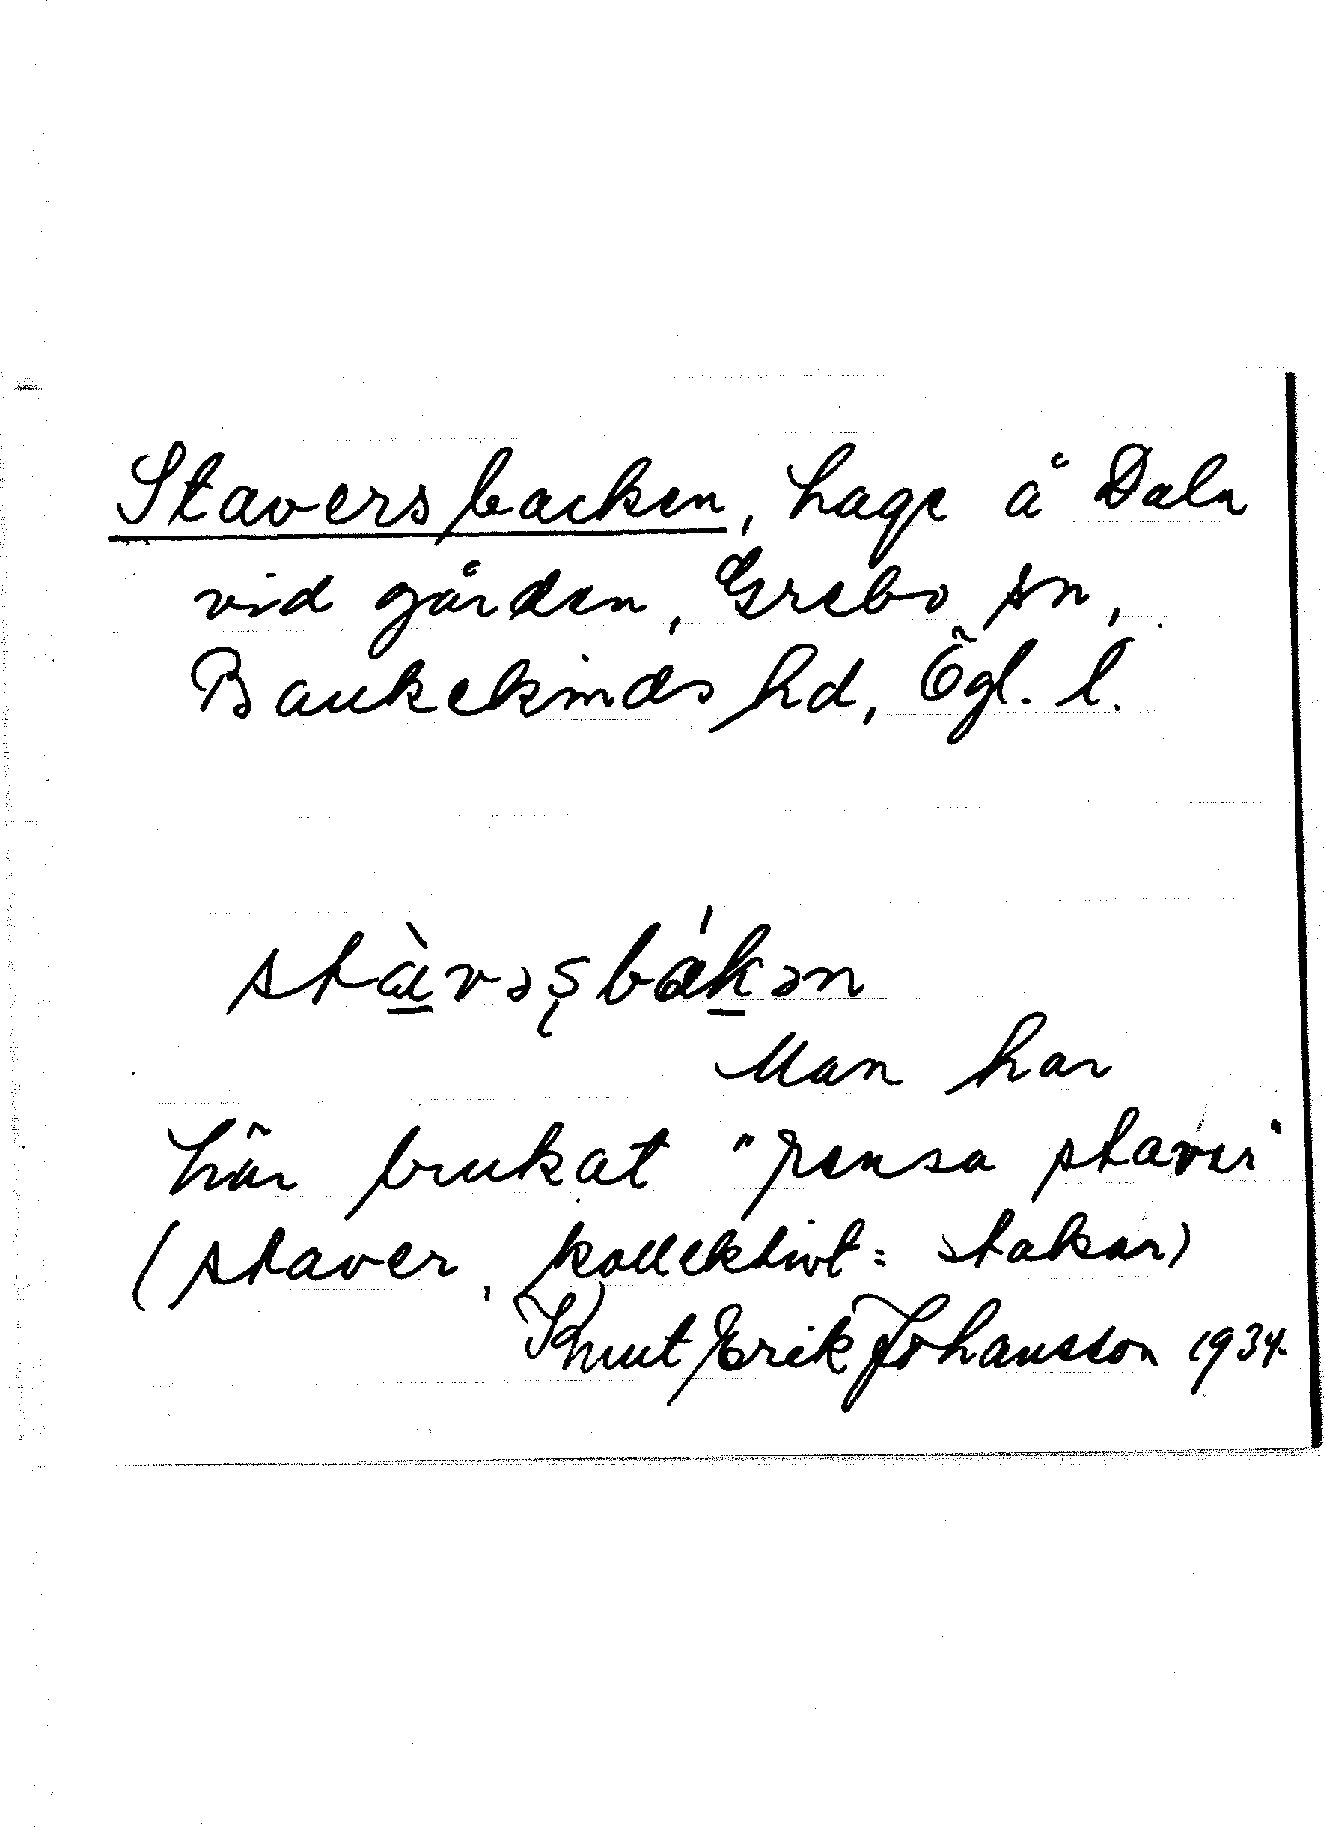 Staversbacken, hage å Daln
vid gården, Grebo sn,
Bankekinds hd, Ögl. l.
stàvəʂbákən
Man har
här brukat "rensa staver"
(staver, kollektivt = stakar)
Knut Erik Johansson 1934.